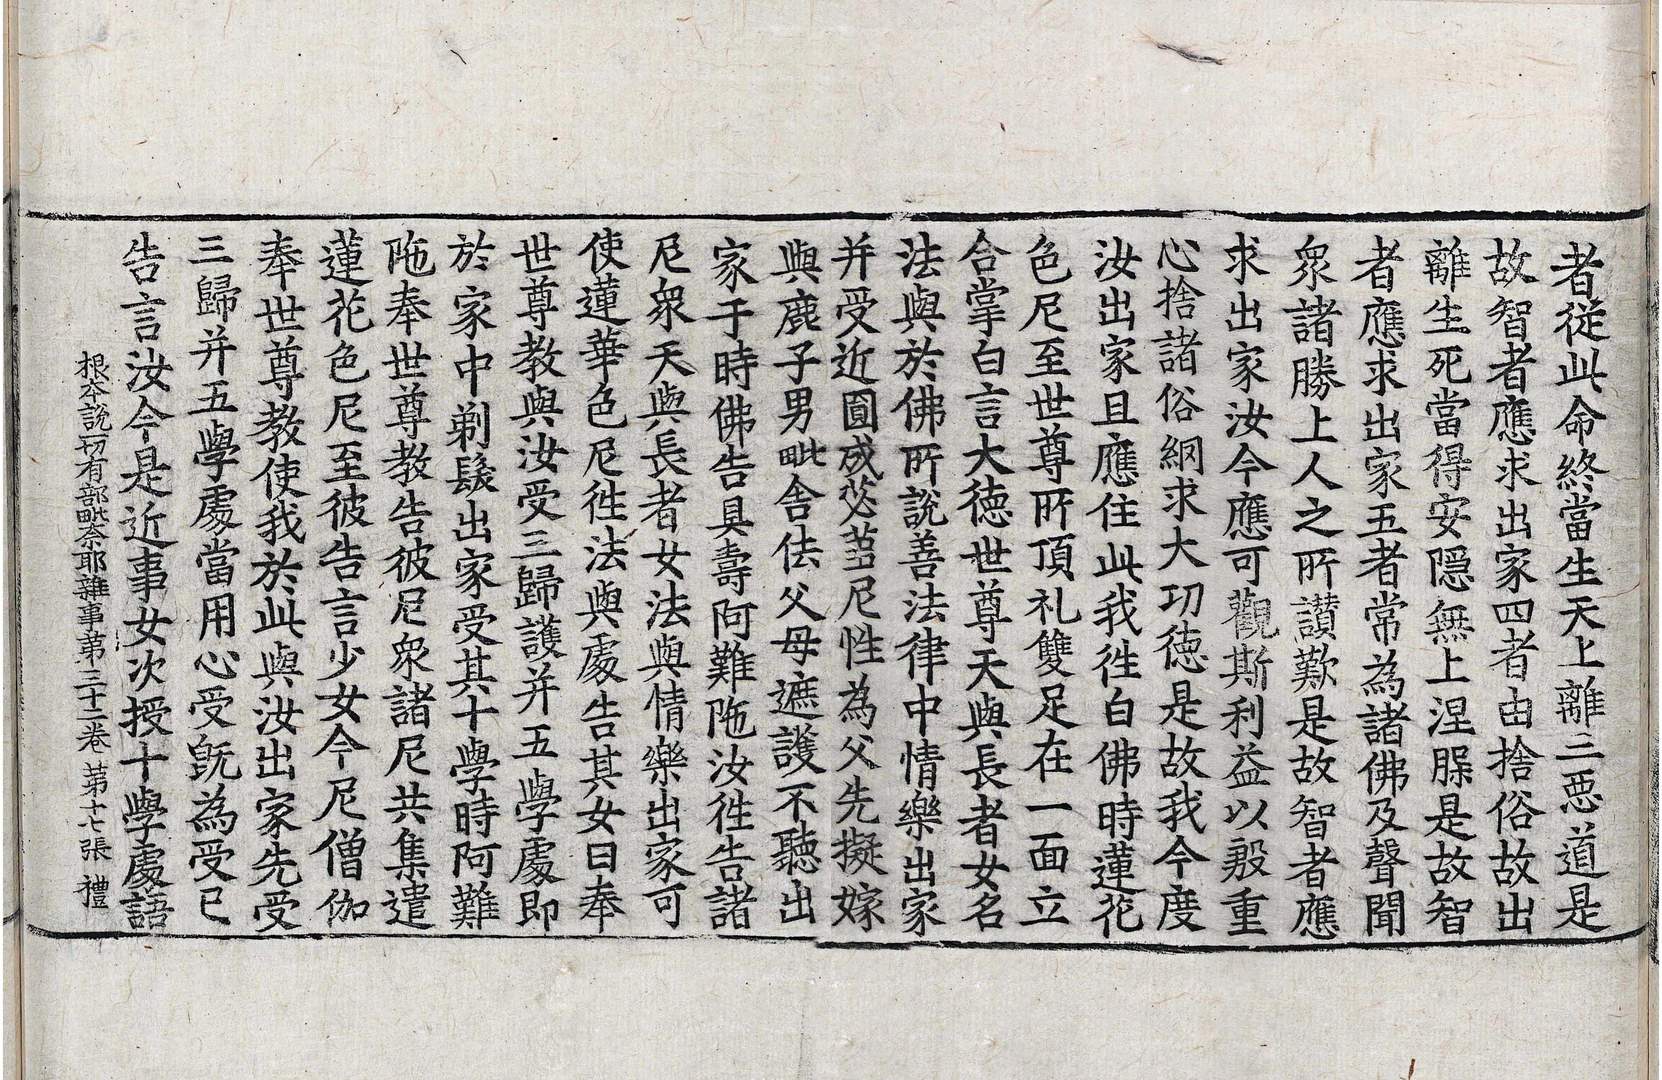 者從此命終當生天上離三惡道是
故智者應求出家四者由捨俗故出
離生死當得安隱無上涅槃是故智
者應求出家五者常為諸佛及聲聞
衆諸勝上人之所讃歎是故智者應
求出家汝今應可觀斯利益以殷重
心捨諸俗網求大功德是故我今度
汝出家且應住此我徃白佛時蓮花
色尼至世尊所頂礼雙足在一面立
合掌白言大德世尊天與長者女名
法與於佛所說善法律中情樂出家
并受近圓成苾芻尼性為父先擬嫁
與鹿子男毗舍佉父母遮護不聽出
家于時佛告具壽阿難陁汝徃告諸
尼衆天與長者女法與情樂出家可
使蓮華色尼徃法與處告其女曰奉
世尊教與汝受三歸護并五學處即
於家中剃髮出家受其十學時阿難
陁奉世尊教告彼尼衆諸尼共集遣
蓮花色尼至彼告言少女今尼僧伽
奉世尊教使我於此與汝出家先受
三歸并五學處當用心受旣為受已
告言汝今是近事女次授十學處語
根本說一切有部毗奈耶雜事第三十二卷 第十七張 禮